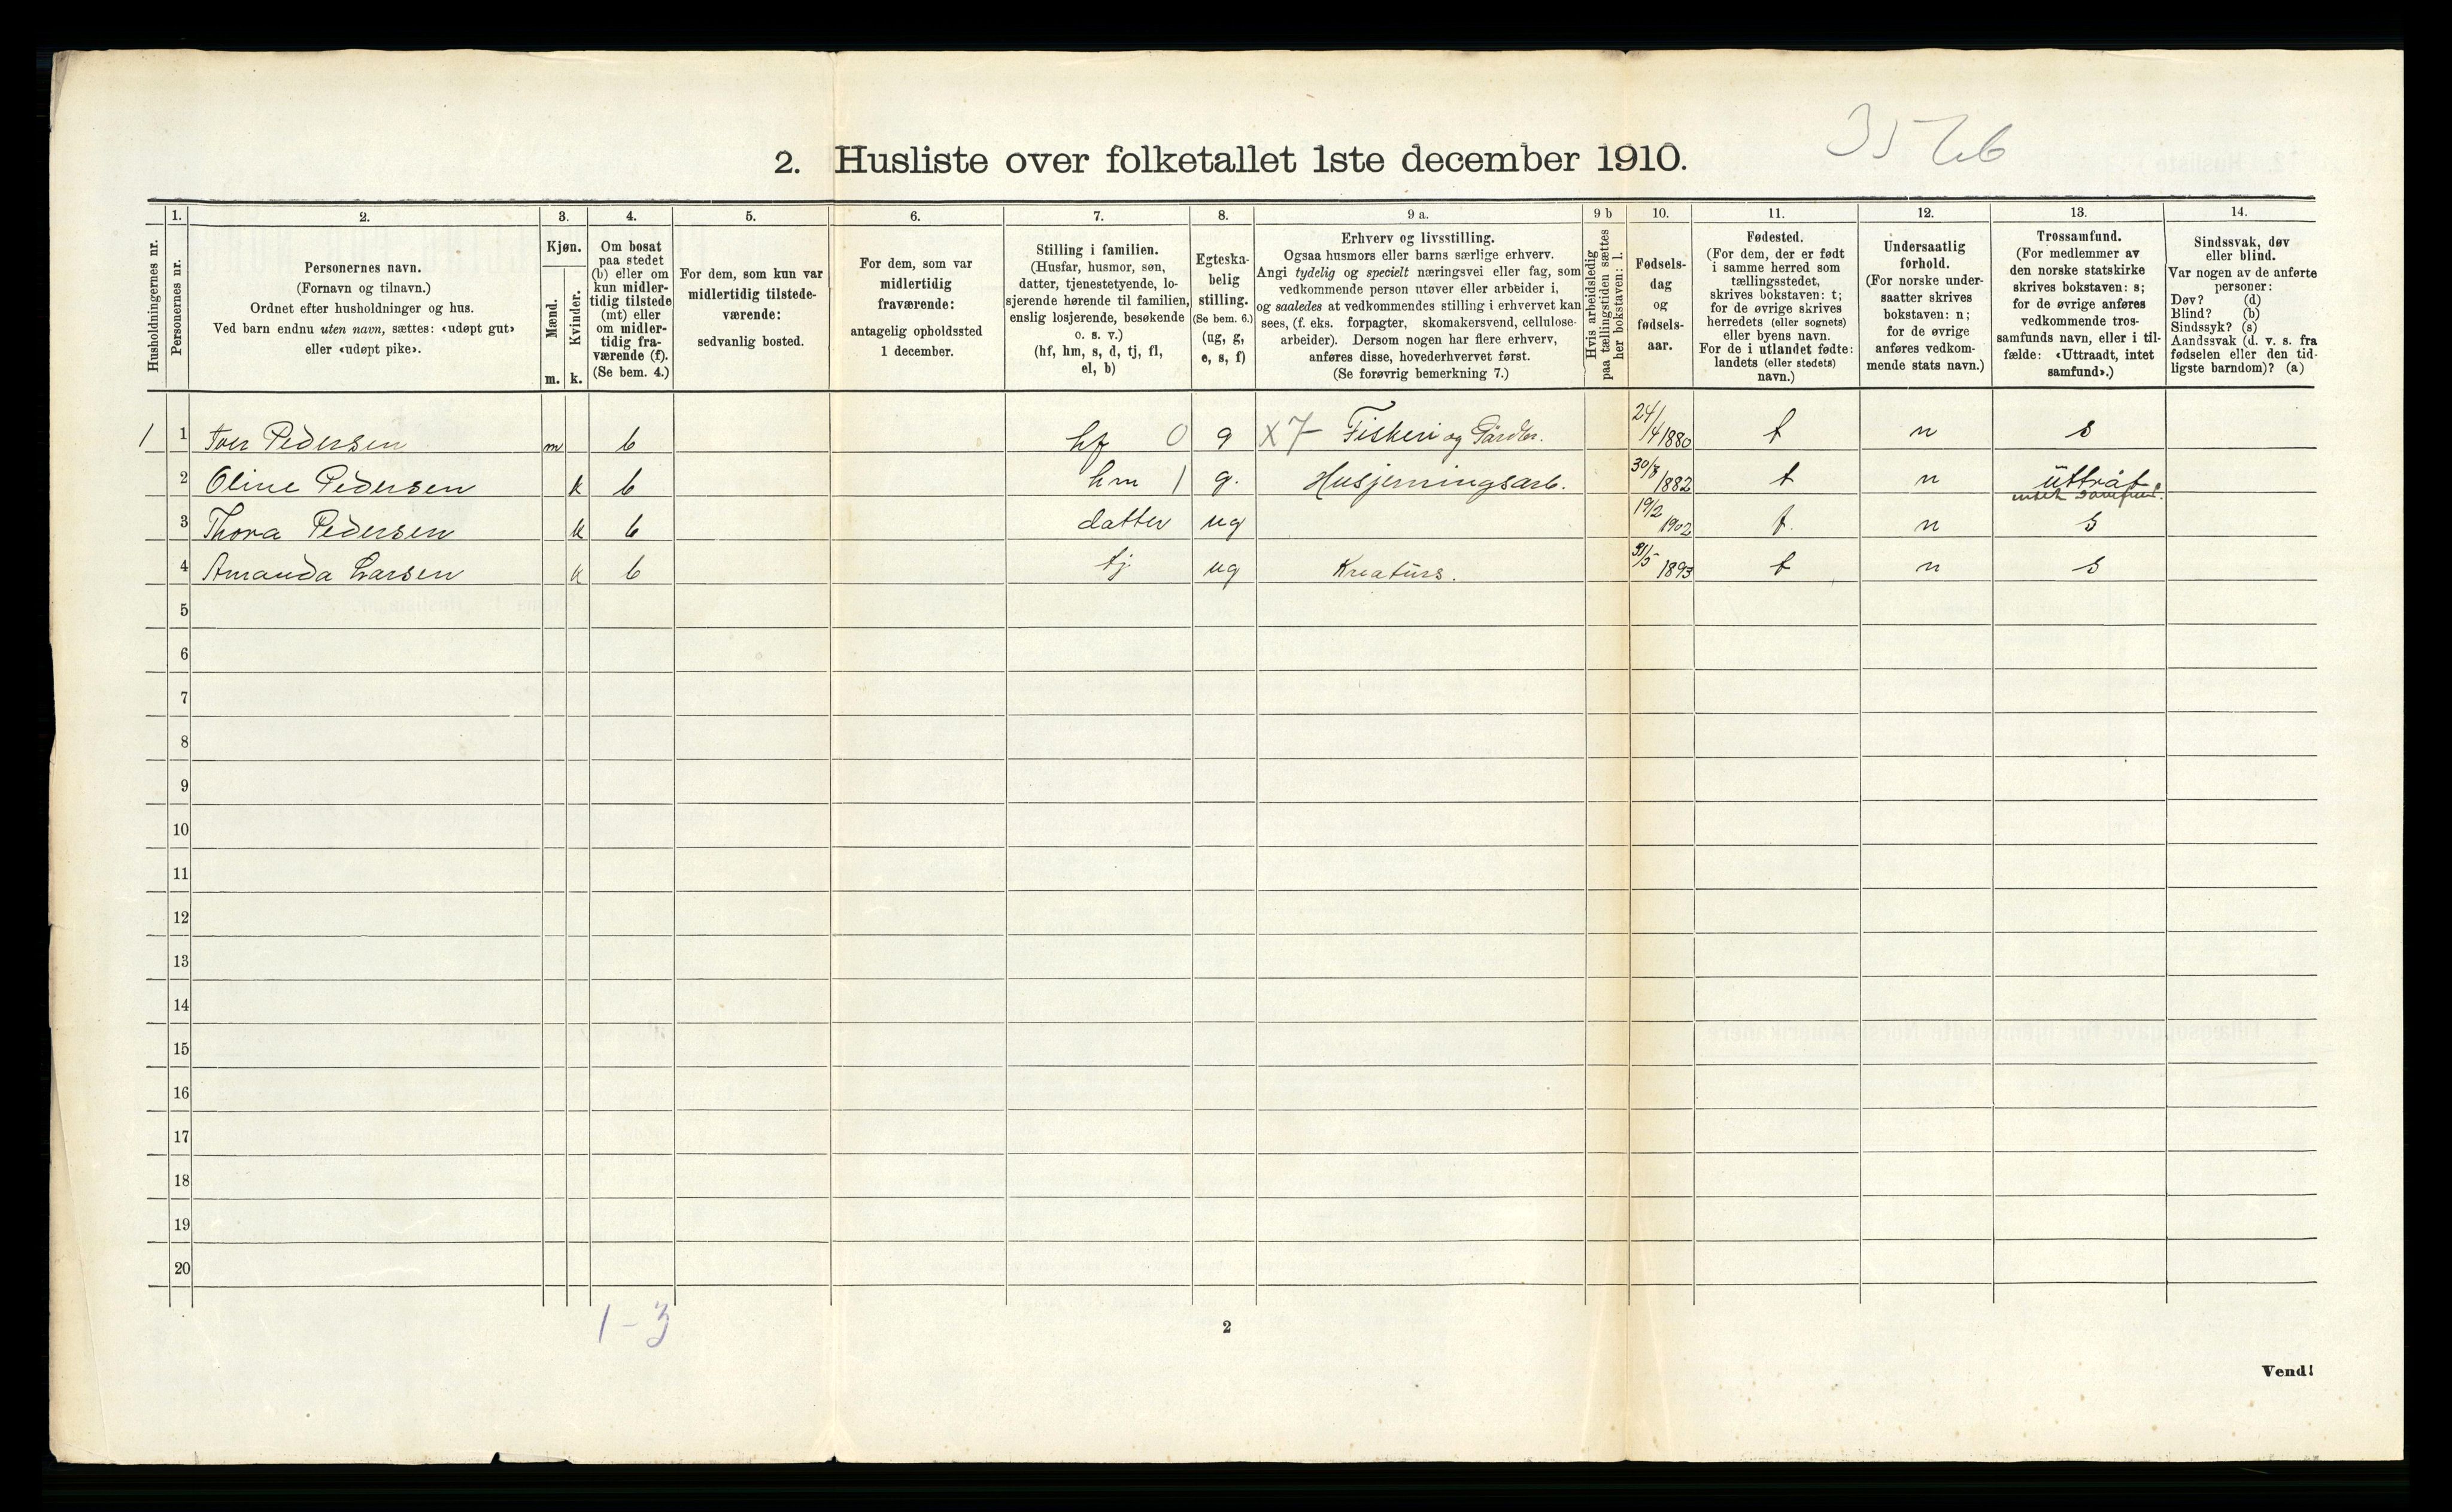 2. Husliste over folketallet 1ste december 1910.
Husholdningernes nr.
1.
Personernes nr.
2.
Personernes navn.
(Fornavn og tilnavn.)
Ordnet efter husholdninger og hus.
Ved barn endnu uten navn, sættes: «udøpt gut»
eller «udøpt pike».
3.
Kjøn.
Mænd.
Kvinder.
m. k.
4.
Om bosat
paa stedet
(b) eller om
kun midler-
tidig tilstede
(mt) eller
om midler-
tidig fra-
værende (f).
(Se bem. 4.)
5.
For dem, som kun var
midlertidig tilstede-
værende:
sedvanlig bosted.
6.
For dem, som var
midlertidig
fraværende:
antagelig opholdssted
1 december.
7.
Stilling i familien.
(Husfar, husmor, søn,
datter, tjenestetyende, lo-
sjerende hørende til familien,
enslig losjerende, besøkende
o. s. v.)
(hf, hm, s, d, tj, fl,
el, b)
8.
Egteska-
belig
stilling.
(Se bem. 6.)
(ug, g,
e, s, f)
9 a.
Erhverv og livsstilling.
Ogsaa husmors eller barns særlige erhverv.
Angi tydelig og specielt næringsvei eller fag, som
vedkommende person utøver eller arbeider i,
og saaledes at vedkommendes stilling i erhvervet kan
sees, (f. eks. forpagter, skomakersvend, cellulose-
arbeider). Dersom nogen har flere erhverv,
anføres disse, hovederhvervet først.
(Se forøvrig bemerkning 7.)
9 b
Hvis arbeidsledig
paa tællingstiden sættes
her bokstaven: l.
10.
Fødsels-
dag
og
fødsels-
aar.
11.
Fødested.
(For dem, der er født
i samme herred som
tællingsstedet,
skrives bokstaven: t;
for de øvrige skrives
herredets (eller sognets)
eller byens navn.
For de i utlandet fødte:
landets (eller stedets)
navn.)
12.
Undersaatlig
forhold.
(For norske under-
saatter skrives
bokstaven: n;
for de øvrige
anføres vedkom-
mende stats navn.)
13.
Trossamfund.
(For medlemmer av
den norske statskirke
skrives bokstaven: s;
for de øvrige anføres
vedkommende tros-
samfunds navn, eller i til-
fælde: «Uttraadt, intet
samfund».)
14.
Sindssvak, døv
eller blind.
Var nogen av de anførte
personer:
Døv? (d)
Blind? (b)
Sindssyk? (s)
Aandssvak (d. v. s. fra
fødselen eller den tid-
ligste barndom)? (a)
1 1 Iver Pedersen m b hf 0 g X7 Fiskeri og Gårdbr. 24/4 1880 t n s
2 Oline Pedersen k b hm 1 g. Husjerningsarb. 30/8 1882 t n üttråt
intet samfund.
3 Thora Pedersen k b datter ug 19/2 1902 t. n s
4 Amanda Larsen k b tj. ug Kreatürs. 31/5 1893 t n s
5
6
7
8
9
10
11
12
13
14
15
16
17
18
19
20
1-3
2
Vend!